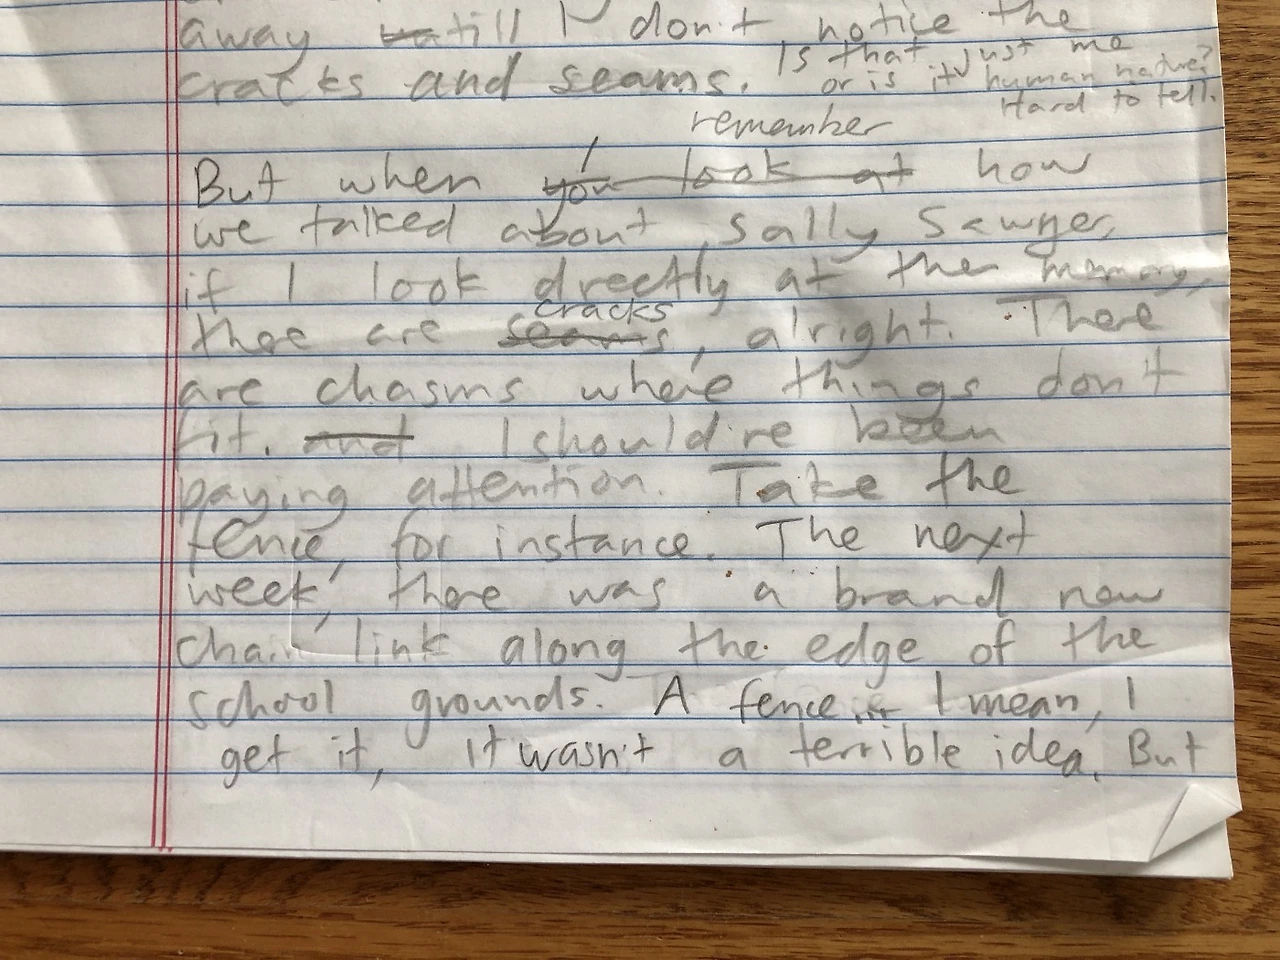 away till I don't notice the
cracks and seams. Is that just me
or is it human nature?
Hard to tell.
remember
But when I you look at how
we talked about Sally Sawyer,
if I look directly at the memory,
cracks
there are seams, alright. There
are chasms where things don't
fit. and I should've been
paying attention. Take the
fence, for instance. The next
week, there was a brand new
chain link along the edge of the
school grounds. A fence. I mean, I
get it, it wasn't a terrible idea. But